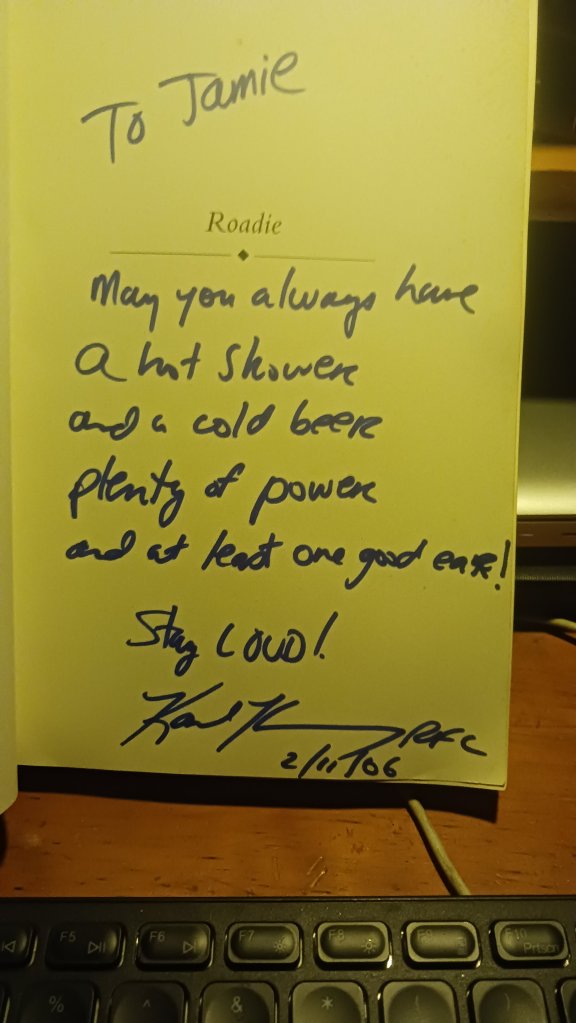 To Jamie
Roadie
May you always have
a hot shower
and a cold beer
plenty of power
and at least one good ear!
Stay LOUD!
Karl RFC
2/11/06
F5
F6
F7
F8
F9
F10
PrtScn
%
^
&
*
(
)